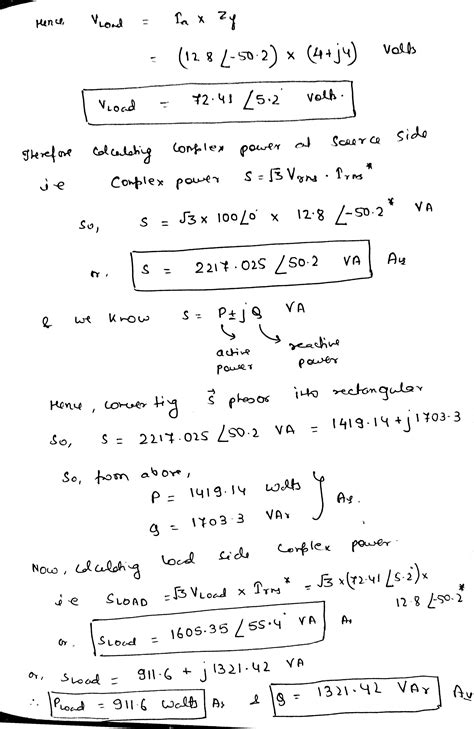 Hence, VLoad = Ia × Zy
= (12.8 ∠-50.2) × (4+j4) Volts
VLoad = 72.41 ∠5.2° Volts.
Therefore calculating complex power at source side
i.e Complex power S = √3 Vrms · Irms*
So, S = √3 × 100∠0° × 12.8 ∠-50.2* VA
or. S = 2217.025 ∠50.2 VA Ans
& we know S = P±jQ VA
active power
reactive power
Hence, converting S⃗ phasor into rectangular
So, S = 2217.025 ∠50.2 VA = 1419.14 + j1703.3
So, from above,
P = 1419.14 watts
Q = 1703.3 VAr
Ans.
Now, calculating load side complex power.
i.e SLOAD = √3 VLoad × Irms* = √3 × (72.41 ∠5.2) ×
12.8 ∠50.2*
or. SLoad = 1605.35 ∠55.4° VA Ans
or, SLoad = 911.6 + j1321.42 VA
∴ PLoad = 911.6 Watts Ans & Q = 1321.42 VAr Ans